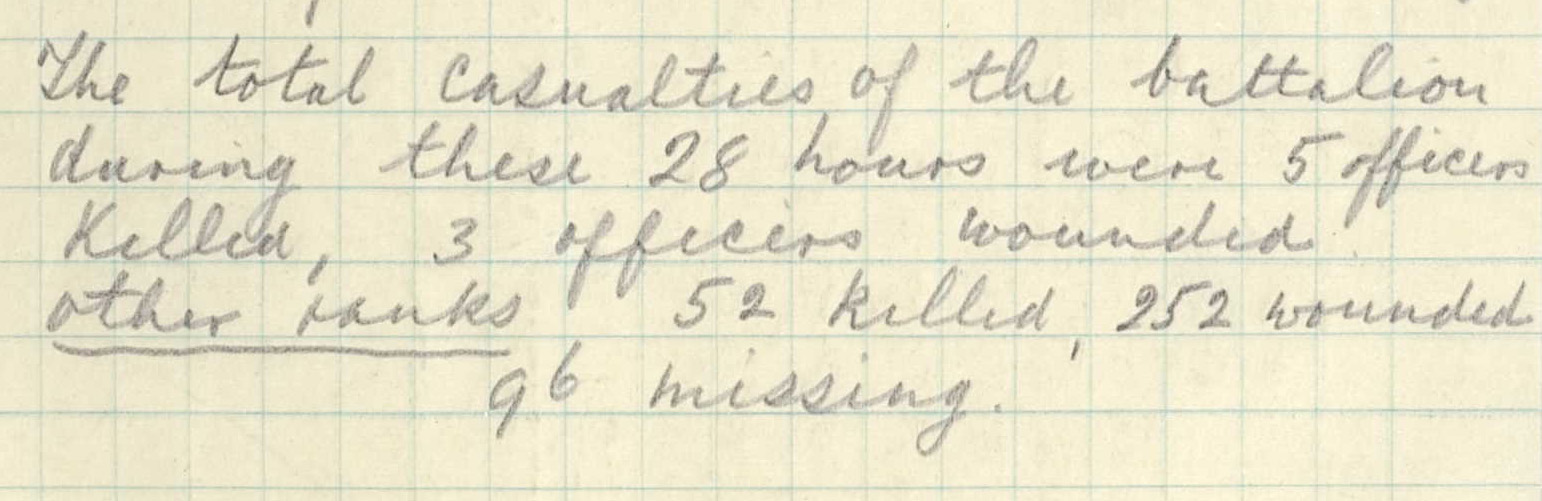 The total casualties of the battalion
during these 28 hours were 5 officers
Killed, 3 officers wounded
other ranks 52 killed, 252 wounded
96 missing.